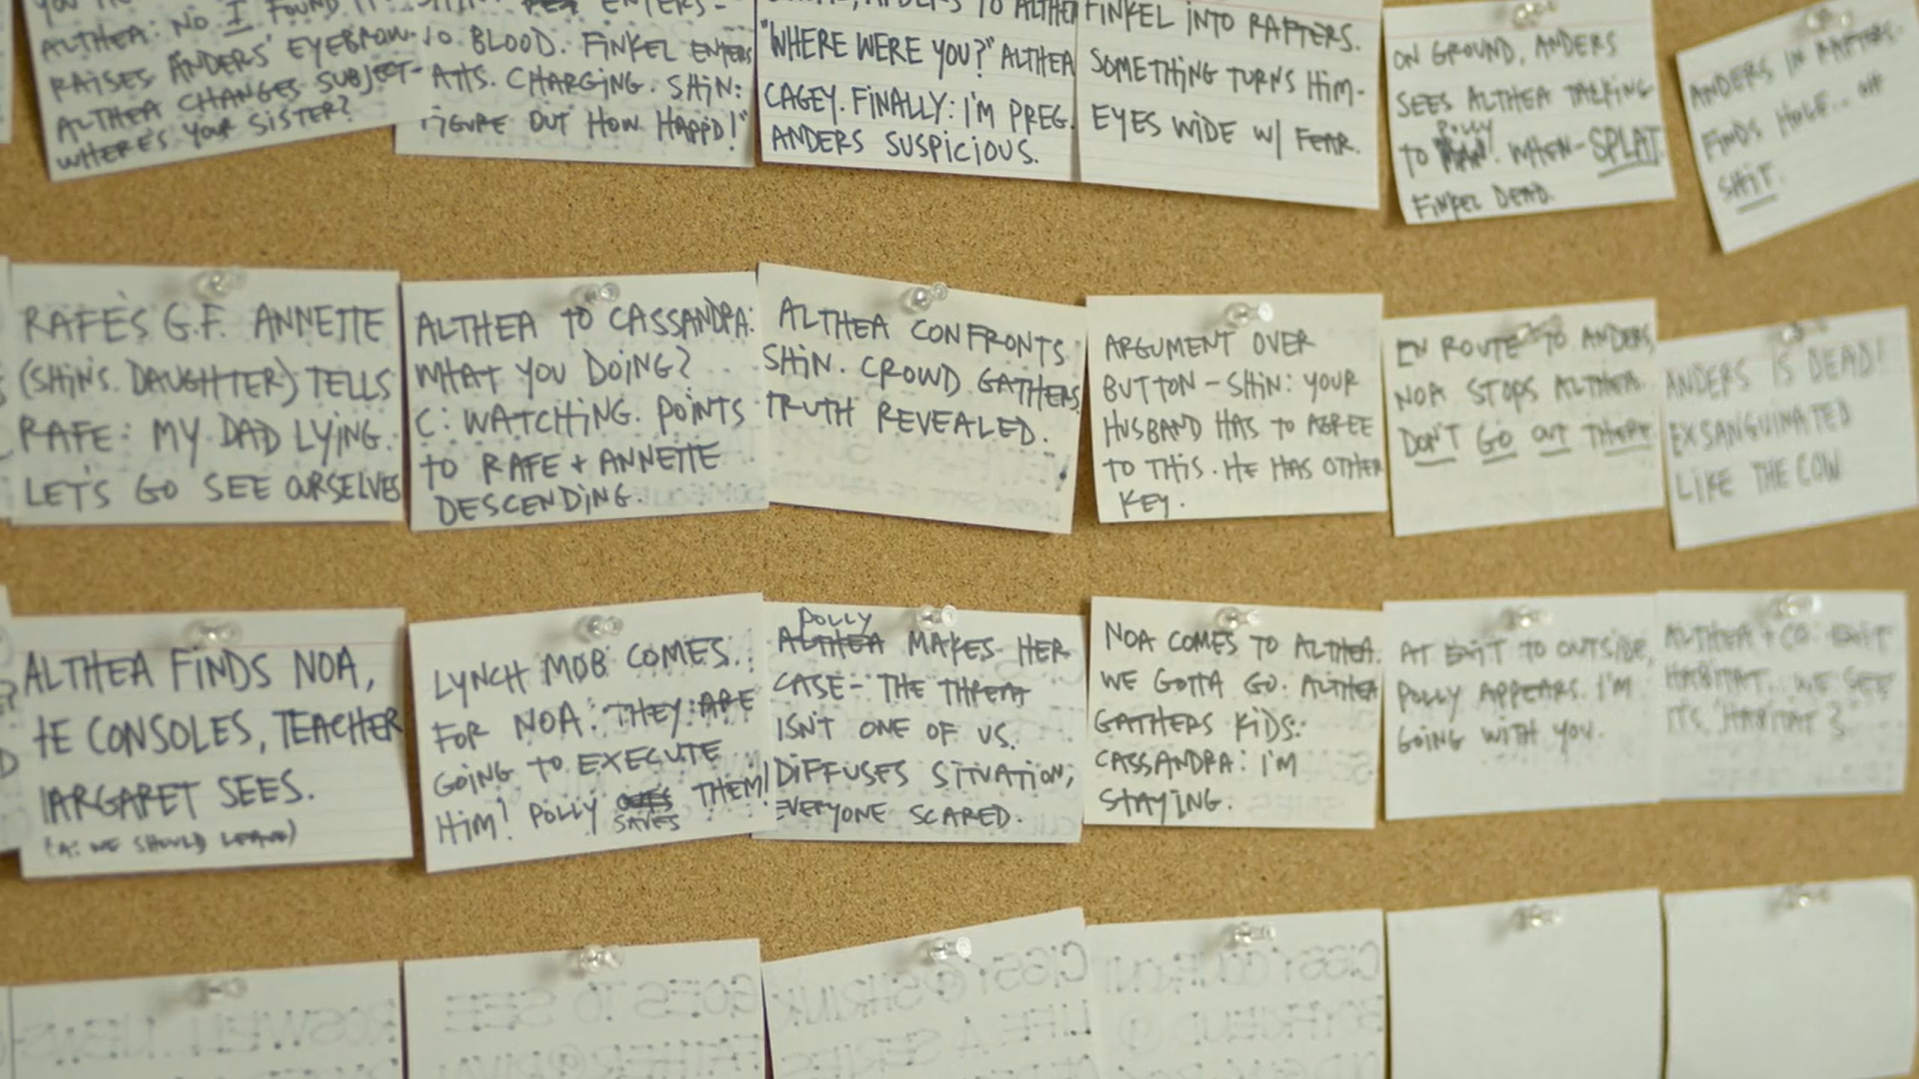 ALTHEA: NO I FOUND IT
RAISES ANDERS' EYEBROW.
ALTHEA CHANGES SUBJECT-
WHERE'S YOUR SISTER?
ENTERS-
BLOOD. FINKEL ENTERS
ATTS. CHARGING. SHIN:
FIGURE OUT HOW HAPP'D!"
ANDERS TO ALTHEA
"WHERE WERE YOU?" ALTHEA
CAGEY. FINALLY: I'M PREG.
ANDERS SUSPICIOUS.
FINKEL INTO RAFTERS.
SOMETHING TURNS HIM-
EYES WIDE W/ FEAR.
ON GROUND, ANDERS
SEES ALTHEA TALKING
POLLY
TO MAN. WHEN-SPLAT
FINKEL DEAD.
ANDERS IN RAFTERS.
FINDS HOLE... OH
SHIT.
RAFE'S G.F. ANNETTE
(SHIN'S DAUGHTER) TELLS
RAFE: MY DAD LYING.
LET'S GO SEE OURSELVES
ALTHEA TO CASSANDRA:
WHAT YOU DOING?
C: WATCHING. POINTS
TO RAFE + ANNETTE
DESCENDING.
ALTHEA CONFRONTS
SHIN. CROWD GATHERS
TRUTH REVEALED.
ARGUMENT OVER
BUTTON - SHIN: YOUR
HUSBAND HAS TO AGREE
TO THIS. HE HAS OTHER
KEY.
EN ROUTE TO ANDERS,
NOA STOPS ALTHEA.
DON'T GO OUT THERE
ANDERS IS DEAD!
EXSANGUINATED
LIKE THE COW
ALTHEA FINDS NOA,
HE CONSOLES, TEACHER
MARGARET SEES.
(A: WE SHOULD LEAVE)
LYNCH MOB COMES
FOR NOA: THEY ARE
GOING TO EXECUTE
HIM! POLLY SAVES THEM!
POLLY
ALTHEA MAKES HER
CASE - THE THREAT
ISN'T ONE OF US.
DIFFUSES SITUATION,
EVERYONE SCARED.
NOA COMES TO ALTHEA.
WE GOTTA GO. ALTHEA
GATHERS KIDS:
CASSANDRA: I'M
STAYING.
AT EXIT TO OUTSIDE,
POLLY APPEARS. I'M
GOING WITH YOU.
ALTHEA + CO: EXIT
HABITAT... WE SEE
ITS "HABITAT 3"